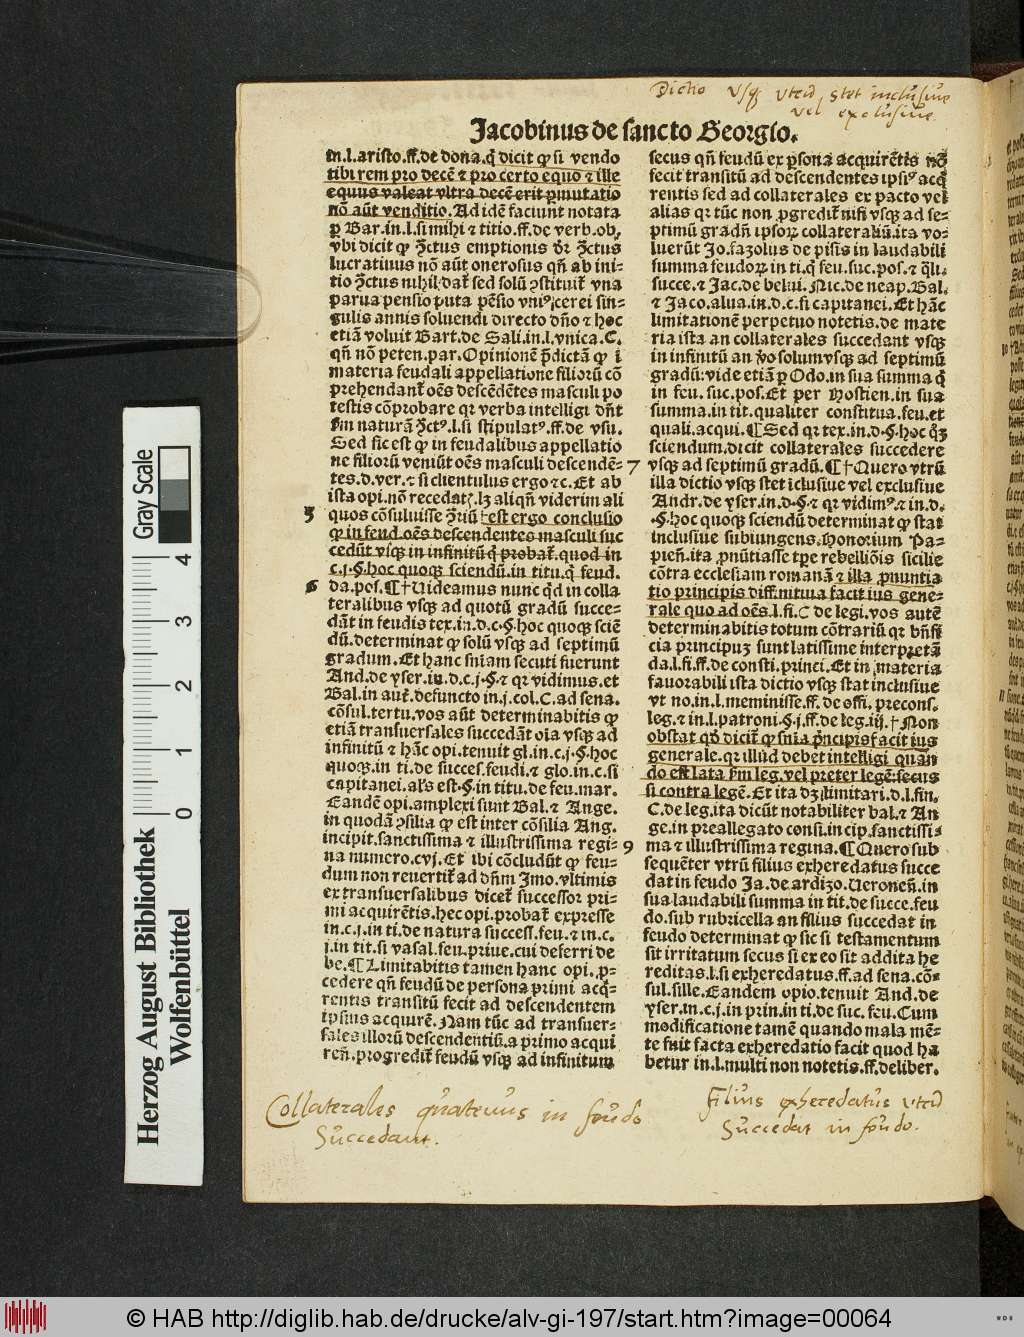 Dictio vsq̄ vtrū stet inclusiue
vel exclusiue
Jacobinus de sancto Georgio.
in.l.aristo.ff.de dona.q̄ dicit ꝙ si vendo
tibi rem pro decē ⁊ pro certo equo ⁊ ille
equus valeat vltra decē erit ꝑmutatio
nō aūt venditio. Ad idē faciunt notata
ꝑ Bar.in.l.si mihi ⁊ titio.ff.de verb.ob.
vbi dicit ꝙ ꝯtractus emptionis
lucratiuus nō aūt onerosus qn̄ ab ini-
tio nihil datr̄ sed solū ꝯstituitr̄ vna
parua pensio puta pēsio vniꝰ cerei sin-
gulis annis soluendi directo dn̄o ⁊ hoc
etiā voluit Bart.de Sali.in.l.vnica.C.
qn̄ nō peten.par. Opinionē p̄dictā ꝙ ī
materia feudali appellatione filiorū cō
prehendantr̄ oēs descēdētes masculi po
testis cōprobare qꝛ verba intelligi dn̄t
naturā si stipulatꝰ.ff.de vsu.
Sed sic est ꝙ in feudalibus appellatio
ne filiorū veniūt oēs masculi descendē-
tes.d.ver.⁊ si clientulus ergo ⁊c. Et ab
ista opi.nō recedatꝭ.lꝫ aliqn̄ viderim ali
3 quos cōsuluisse † est ergo conclusio
ꝙ in feud.oēs descendentes masculi suc
cedūt vsq̄ in infinitū q̄ probatr̄.quod in
c.j.§.hoc quoqꝫ sciendū.in titu.q̄ feud.
6 da.pos.¶†Uideamus nunc qd̄ in colla
teralibus vsqꝫ ad quotū gradū succe-
dāt in feudis tex.in.d.c.§.hoc quoqꝫ sciē
dū.determinat ꝙ solū vsqꝫ ad septimū
gradum. Et hanc sniam secuti fuerunt
And.de yser.in.d.c.j.§.⁊ qꝛ vidimus.et
Bal.in aut̄.defuncto in.j.col.C.ad sena.
cōsul.tertu.vos aūt determinabitis ꝙ
etiā transuersales succedāt oīa vsqꝫ ad
infinitū ⁊ hāc opi.tenuit gl.in.c.j.§.hoc
quoqꝫ.in ti.de succes.feudi.⁊ glo.in.c.si
capitanei.al's est.§.in titu.de feu.mar.
Eandē opi.amplexi sunt Bal.⁊ Ange.
in quodā ꝯsilia ꝙ est inter cōsilia Ang.
incipit.sanctissima ⁊ illustrissima regi-
na numero.cvj. Et ibi cōcludūt ꝙ feu-
dum non reuertitr̄ ad dn̄m Imo.vltimis
ex transuersalibus dicetr̄ successor pri-
mi acquirētis.hec opi.probatr̄ expresse
in.c.j.in ti.de natura success.feu.⁊ in.c.
j.in tit.si vasal.feu.priue.cui deferri de
be.¶Limitabitis tamen hanc opi.ꝓ-
cedere qn̄ feudū de persona primi acq̄-
rentis transitū fecit ad descendentem
ipsius acquirē. Nam tūc ad transuer-
sales illorū descendentiū.a primo acqui
ren̄.progreditr̄ feudū vsqꝫ ad infinitum
secus qn̄ feudū ex ꝑsona acquirētis nō
fecit transitū ad descendentes ipsiꝰ acq̄
rentis sed ad collaterales ex pacto vel
alias qꝛ tūc non ꝓgreditr̄ nisi vsqꝫ ad se-
ptimū gradū ipsoꝝ collateraliū.ita vo-
luerūt Jo.fazolus de pisis in laudabili
summa feudoꝝ in ti.q̄ feu.suc.pos.⁊ q̄li.
succe.⁊ Jac.de belui. Nic.de neap. Bal.
⁊ Jaco.alua.in.d.c.si capitanei. Et hāc
limitationē perpetuo notetis.de mate
ria ista an collaterales succedant vsqꝫ
in infinitū an v̄o solum vsqꝫ ad septimū
gradū:vide etiā ꝑ Odo.in sua summa q̄
in feu.suc.pos. Et per Hostien.in sua
summa.in tit.qualiter constitua.feu.et
quali.acqui.¶Sed qꝛ tex.in.d.§.hoc
sciendum.dicit collaterales succedere
7 vsqꝫ ad septimū gradū.¶†Quero vtrū
illa dictio vsqꝫ stet īclusiue vel exclusiue
Andr.de yser.in.d.§.⁊ qꝛ vidimꝰ.⁊ in.d.
.§.hoc quoqꝫ sciendū determinat ꝙ stat
inclusiue subiungens. Honorium Pa-
pien̄.ita ꝓnūtiasse tꝑe rebelliōis sicilie
cōtra ecclesiam romanā ⁊ illa ꝓnuntia
tio principis diffinitiua facit ius gene-
rale quo ad oēs.l.fi.C de legi.vos autē
determinabitis totum cōtrariū qꝛ bn̄fi
cia principuꝫ sunt latissime interpretā
da.l.fi.ff.de consti.princi. Et in materia
fauorabili ista dictio vsqꝫ stat inclusiue
vt no.in.l.meminisse.ff.de offi.precons.
leg.⁊ in.l.patroni.§.j.ff.de leg.iij.† Non
obstat dicitr̄ ꝙ snia p̄ncipis facit ius
generale.qꝛ illud debet intelligi quan
do est lata leg.vel preter legē:secus
si contra legē. Et ita dꝫ limitari.d.l.fin.
C.de leg.ita dicūt notabiliter bal.⁊ An
ge.in preallegato consi.incip.sanctissi-
9 ma ⁊ illustrissima regina.¶Quero sub
sequēter vtrū filius exheredatus succe
dat in feudo Ja.de ardizo. Ueronen̄.in
sua laudabili summa in tit.de succe.feu
do.sub rubricella an filius succedat in
feudo determinat ꝙ sic si testamentum
sit irritatum secus si ex eo sit addita he
reditas.l.si exheredatus.ff.ad sena.cō-
sul.sille. Eandem opio.tenuit And.de
yser.in.c.j.in prin.in ti.de suc.feu. Cum
modificatione tamē quando mala mē-
te fuit facta exheredatio facit quod ha
betur in.l.multi non notetis.ff.de liber.
Collaterales quatenus in feudo
Succedant.
Filius exheredatus vtrū
Succedat in feudo.
Gray Scale
0 1 2 3 4
Herzog August Bibliothek
Wolfenbüttel
© HAB http://diglib.hab.de/drucke/alv-gi-197/start.htm?image=00064